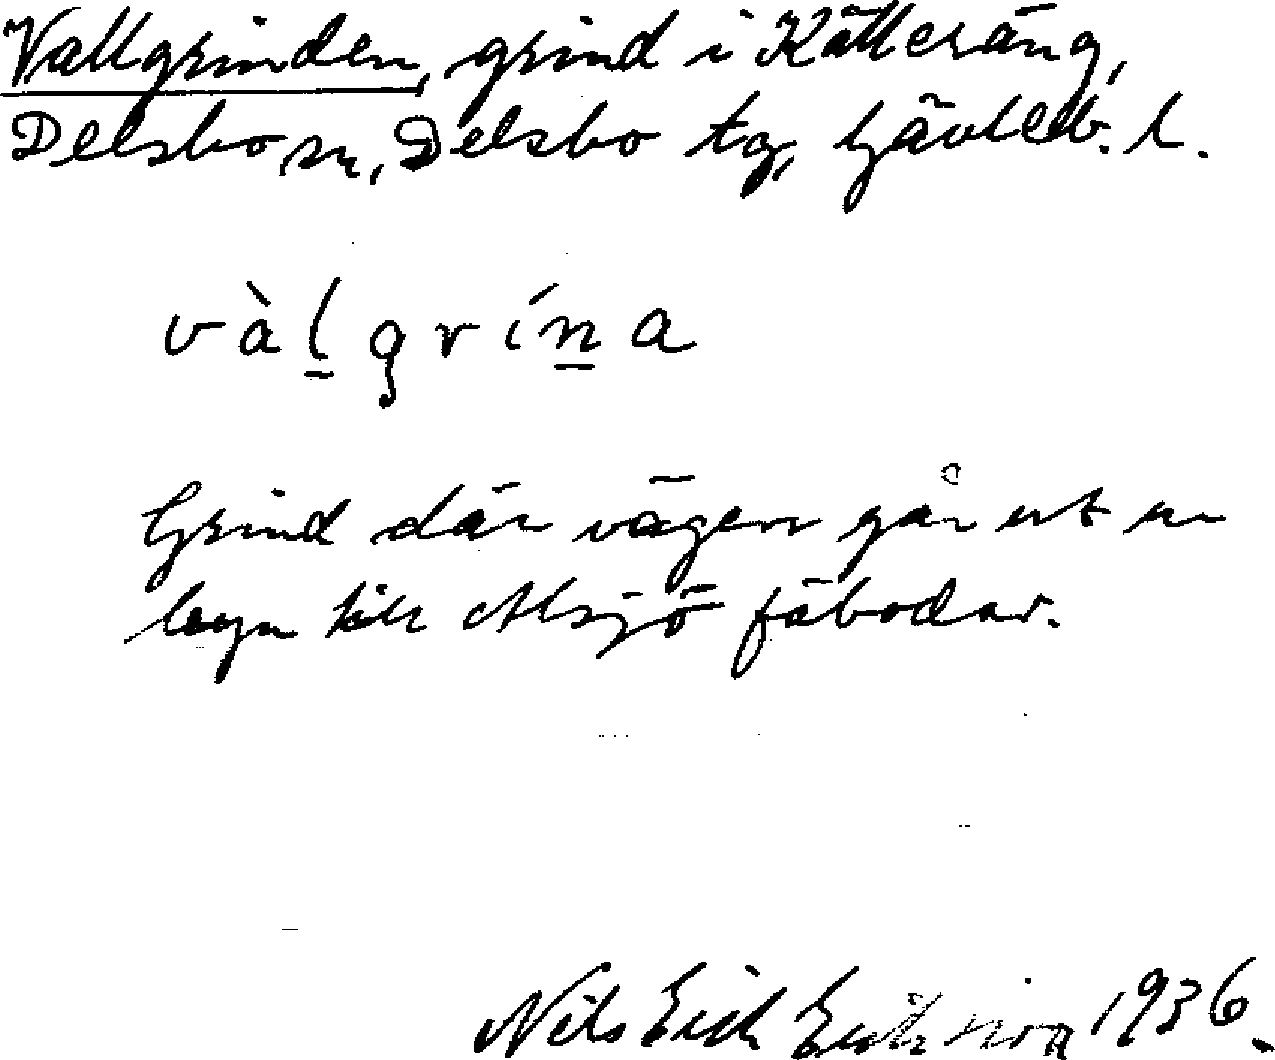 Vallgrinden, grind i Källeräng,
Delsbo sn, Delsbo tg, Gävleb. l.
vàl̲grín̲a
Grind där vägen går ut ur
byn till Alsjö fäbodar.
Nils Erik Eriksson 1936.